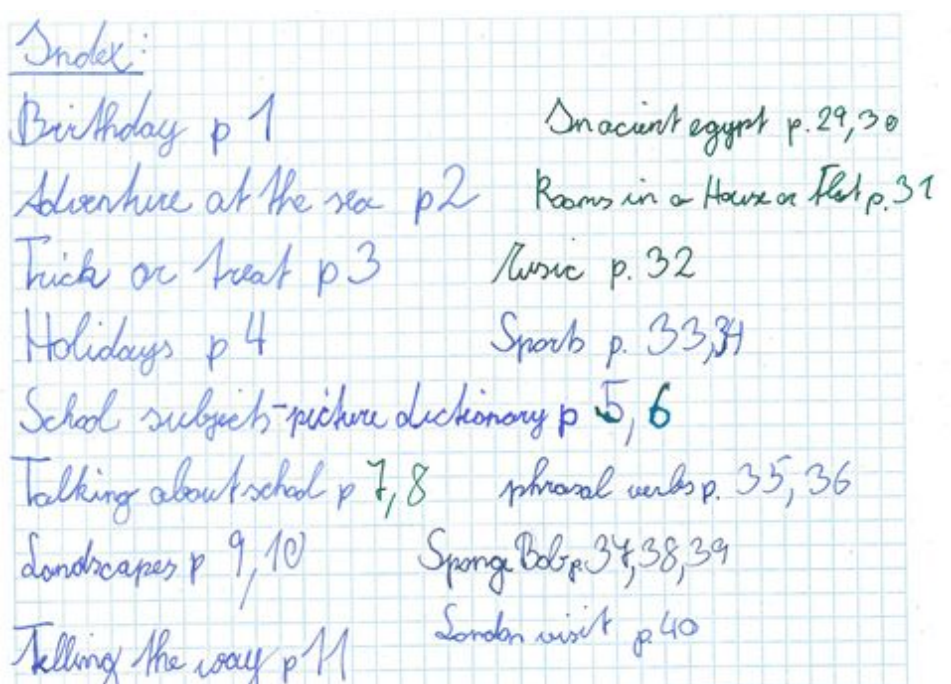 Index:
Birthday p 1
Adventure at the sea p2
Trick or treat p 3
Holidays p 4
School subjects-picture dictionary p 5, 6
Talking about school p 7, 8
Landscapes p 9, 10
Telling the way p 11
In acient egypt p. 29, 30
Rooms in a House or Flat p. 31
Music p. 32
Sports p. 33,34
phrasal verbs p. 35, 36
Sponge Bob p. 37, 38, 39
London visit p. 40